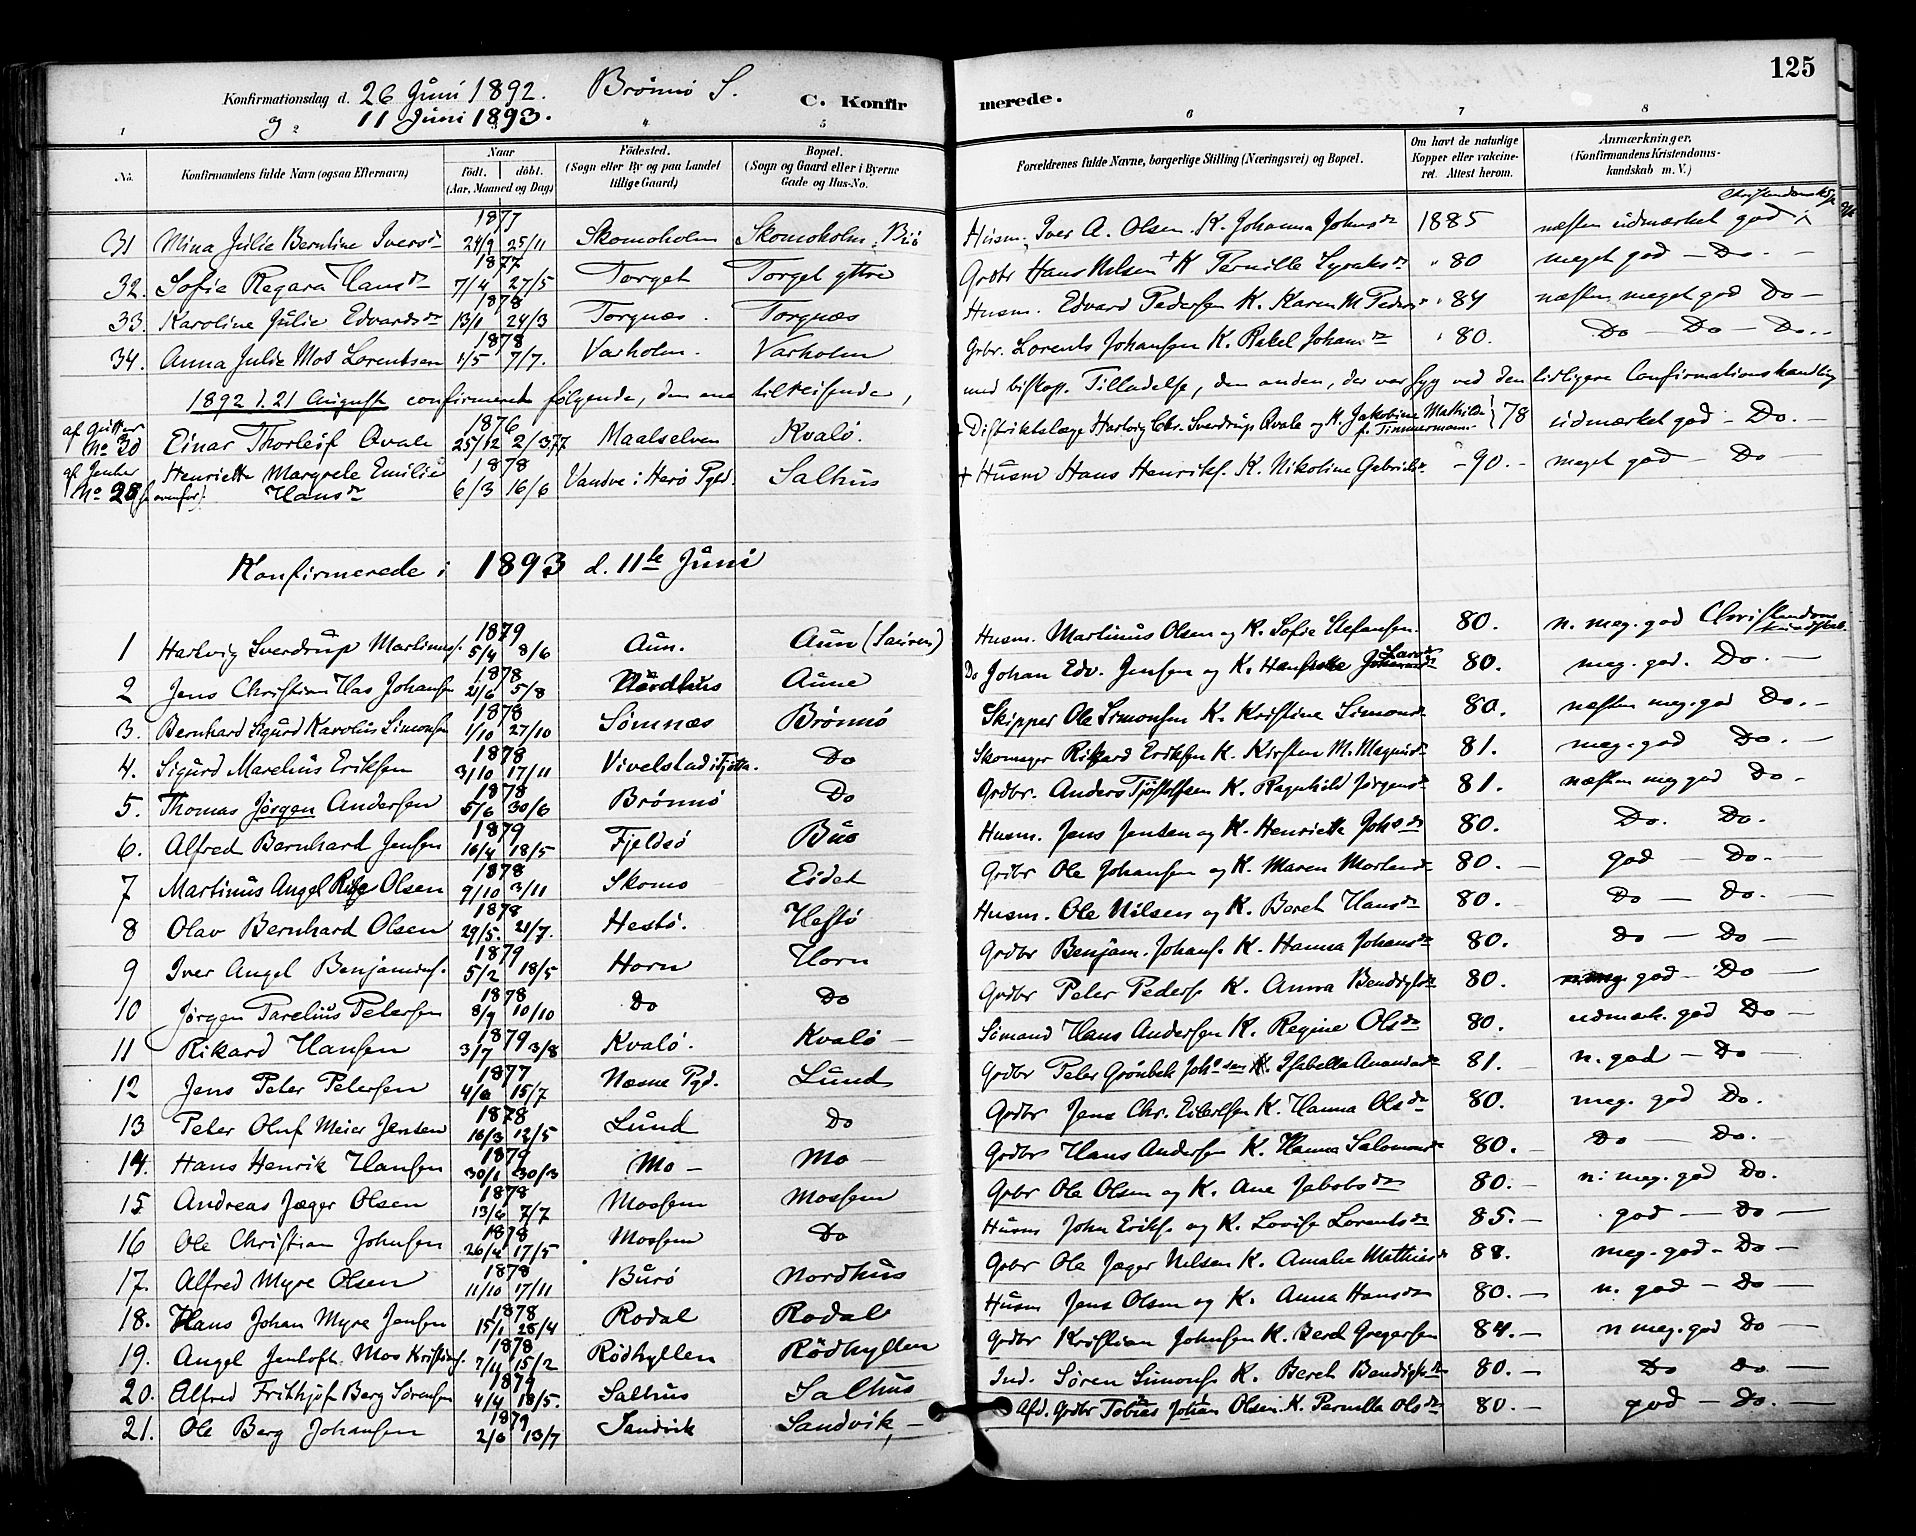 125
Konfirmationsdag d. 26 Juni 1892. Brönnö S. C. Konfirmerede.
og 11 Juni 1893.
1 2 4 5 6 7 8
No. Konfirmandens fulde Navn (ogsaa Efternavn) Naar Födt. döbt. (Aar, Maaned og Dag) Födested. (Sogn eller By og paa Landet tillige Gaard) Bopæl. (Sogn og Gaard eller i Byerne Gade og Hus-No. Forældrenes fulde Navne, borgerlige Stilling (Næringsvei) og Bopæl. Om havt de naturlige Kopper eller vaccineret. Attest herom. Anmærkninger. (Konfirmandens Kristendomskundskab m. V.)
31 Mina Julie Berntine Iversdr 1877 24/9 25/11 Skomoholm Skomoholm, Husm. Iver A. Olsen K. Johanna Johnsdr 1885 næsten udmærket god
32. Sofie Regara Hansdr 1877 7/4 27/5 Torget Torget yttre Grdbr Hans Nilsen K Pernille " 80 meget god — Do. —
33. Karoline Julie Edvardsdr 1878 13/1 24/3 Torgnæs. Torgnæs Husm. Edvard Pedersen K. Karen M. Pedersdr " 84 næsten meget god Do —
34. Anna Julie Mos Lorentsen 1878 1/5 7/7. Varholm. Varholm Grbr. Lorents Johansen K. Rakel Johansdr " 80. Do — Do — Do.
1892 d. 21 August confirmeret følgende, den ene tilreisende, med biskop. Tilladelse, den anden, der var syg ved den tidligere Confirmationshandling
af Gutter No 30 Einar Thorleif Qvale 1876 25/12 2/3 77 Maalselven Kvalö. Distriktslæge Hartvig Chr. Sverdrup Qvale og H. Jakobine Mathilde f. Timmermann 78 udmærket god — Do.
af Jenter No 28 (ovenfor). Henriette Margrete Emilie Hansdr 1878 6/3 16/6 Vandve i Herö Pgd. Salhus + Husm Hans Henriks. K. Nikoline Gabrielsdr — 90. — meget god — Do —
Konfirmerede i 1893 d. 11te Juni
1 Hartvig Sverdrup Martinus. 1879 5/4 8/6 Aun. Aun (Sauren) Husm. Martinus Olsen og K. Sofie Stefansen. 80. n. meg. god Christendoms kundskab.
2 Jens Christian Has Johansen 1878 21/6 5/8 Nordhus Aune Do Johan Edv. Jensen og K. 80. meg. god. Do. —
3. Bernhard Sigurd Karolus Simonsen 1878 1/10 27/10 Sömnæs Brönnö Skipper Ole Simonsen K. Kristine Simonsdr 80. næsten meg. god Do. —
4. Sigurd Marelius Eriksen 1878 3/10 17/11 Vivelstad i Tjötta. Do Skomager Rikard Eriksen K. Kirsten M. Magnusdr 81. meg. god Do. —
5. Thomas Jörgen Andersen 1878 5/6 30/6 Brönnö Do Grdbr. Anders Tjöstolfsen K. Ragnhild Jörgensdr 81. næsten meg god Do —
6. Alfred Bernhard Jensen 1879 16/4 18/5 Fjeldsö Buö Husm. Jens Jensen og K. Henriette Johsdr 80. Do. Do.
7 Martinus Angel Olsen 1878 9/10 3/11 Skomo Eidet Grdbr Ole Johansen og K. Maren Mortensdr 80. — god — Do. —
8 Olav Bernhard Olsen 1878 29/5. 21/7. Hestö. Hestö Husm. Ole Nilsen og K. Beret Hansdr 80. Do — Do.
9 Iver Angel Benjamins. 1879 5/2 18/5 Horn Horn Grdbr Benjam. Johans. K. Hanna Johansdr 80. Do — Do —
10 Jörgen Parelius Petersen 1878 8/9 10/10 Do Do Grdbr Peter Peders. K. Anna 80. n. meg. god — Do —
11 Rikard Hansen 1879 3/7 3/8 Kvalö. Kvalö — Sömand Hans Andersen K. Regine Olsdr 80. udmærk. god Do —
12 Jens Peter Petersen 1877 4/6 15/7 Næsne Pgd. Lund Grdbr Peter Grönbek Johansen K. Isabella 81. n. god — Do —
13 Peter Oluf Meier Jensen 1878 16/3 12/5 Lund Do Grdbr Jens Chr. K. Hanna Olsdr 80. meg. god Do.
14. Hans Henrik Hansen 1879 30/1 30/3 Mo — Mo — Grdbr Hans Andersen K. Hanna Salomonsdr 80. — Do — Do.
15 Andreas Jæger Olsen 1878 13/6 7/7 Mossem Mossem Grbr Ole Olsen og K. Ane Jakobsdr 80. — n. meg. god Do.
16 Ole Christian Johnsen 1878 26/4 17/5 Mossem Do Husm John Eriks. og K. Lovise Lorentsdr 85. — god — Do —
17. Alfred Myre Olsen 1878 11/10 17/11 Burö Nordhus Grbr Ole Jæger Nilsen K. Amalie Mathiasdr 88. meg. god — Do —
18. Hans Johan Myre Jensen 1878 15/1 28/4 Rodal Rodal Husm Jens Olsen og K. Anna Hansdr 80. — n. god — Do —
19. Angel Jentoft Mos Kristians. 1878 7/11 15/2 Rödhyllen Rödhyllen Grdbr Kristian Johnsen K. Beret Gregersen 84. — n meg. god Do —
20. Alfred Frithjof Berg Sörensen 1879 4/4 18/5. Salhus Salhus Ind. Sören Simons. K. Beret Bendiksdr 80. — Do Do —
21. Ole Berg Johansen 1879 2/6 13/7 Sandvik Sandvik, — Afd. Grdbr Tobias Johan Olsen K. Pernille Olsdr 80. — god — Do. —